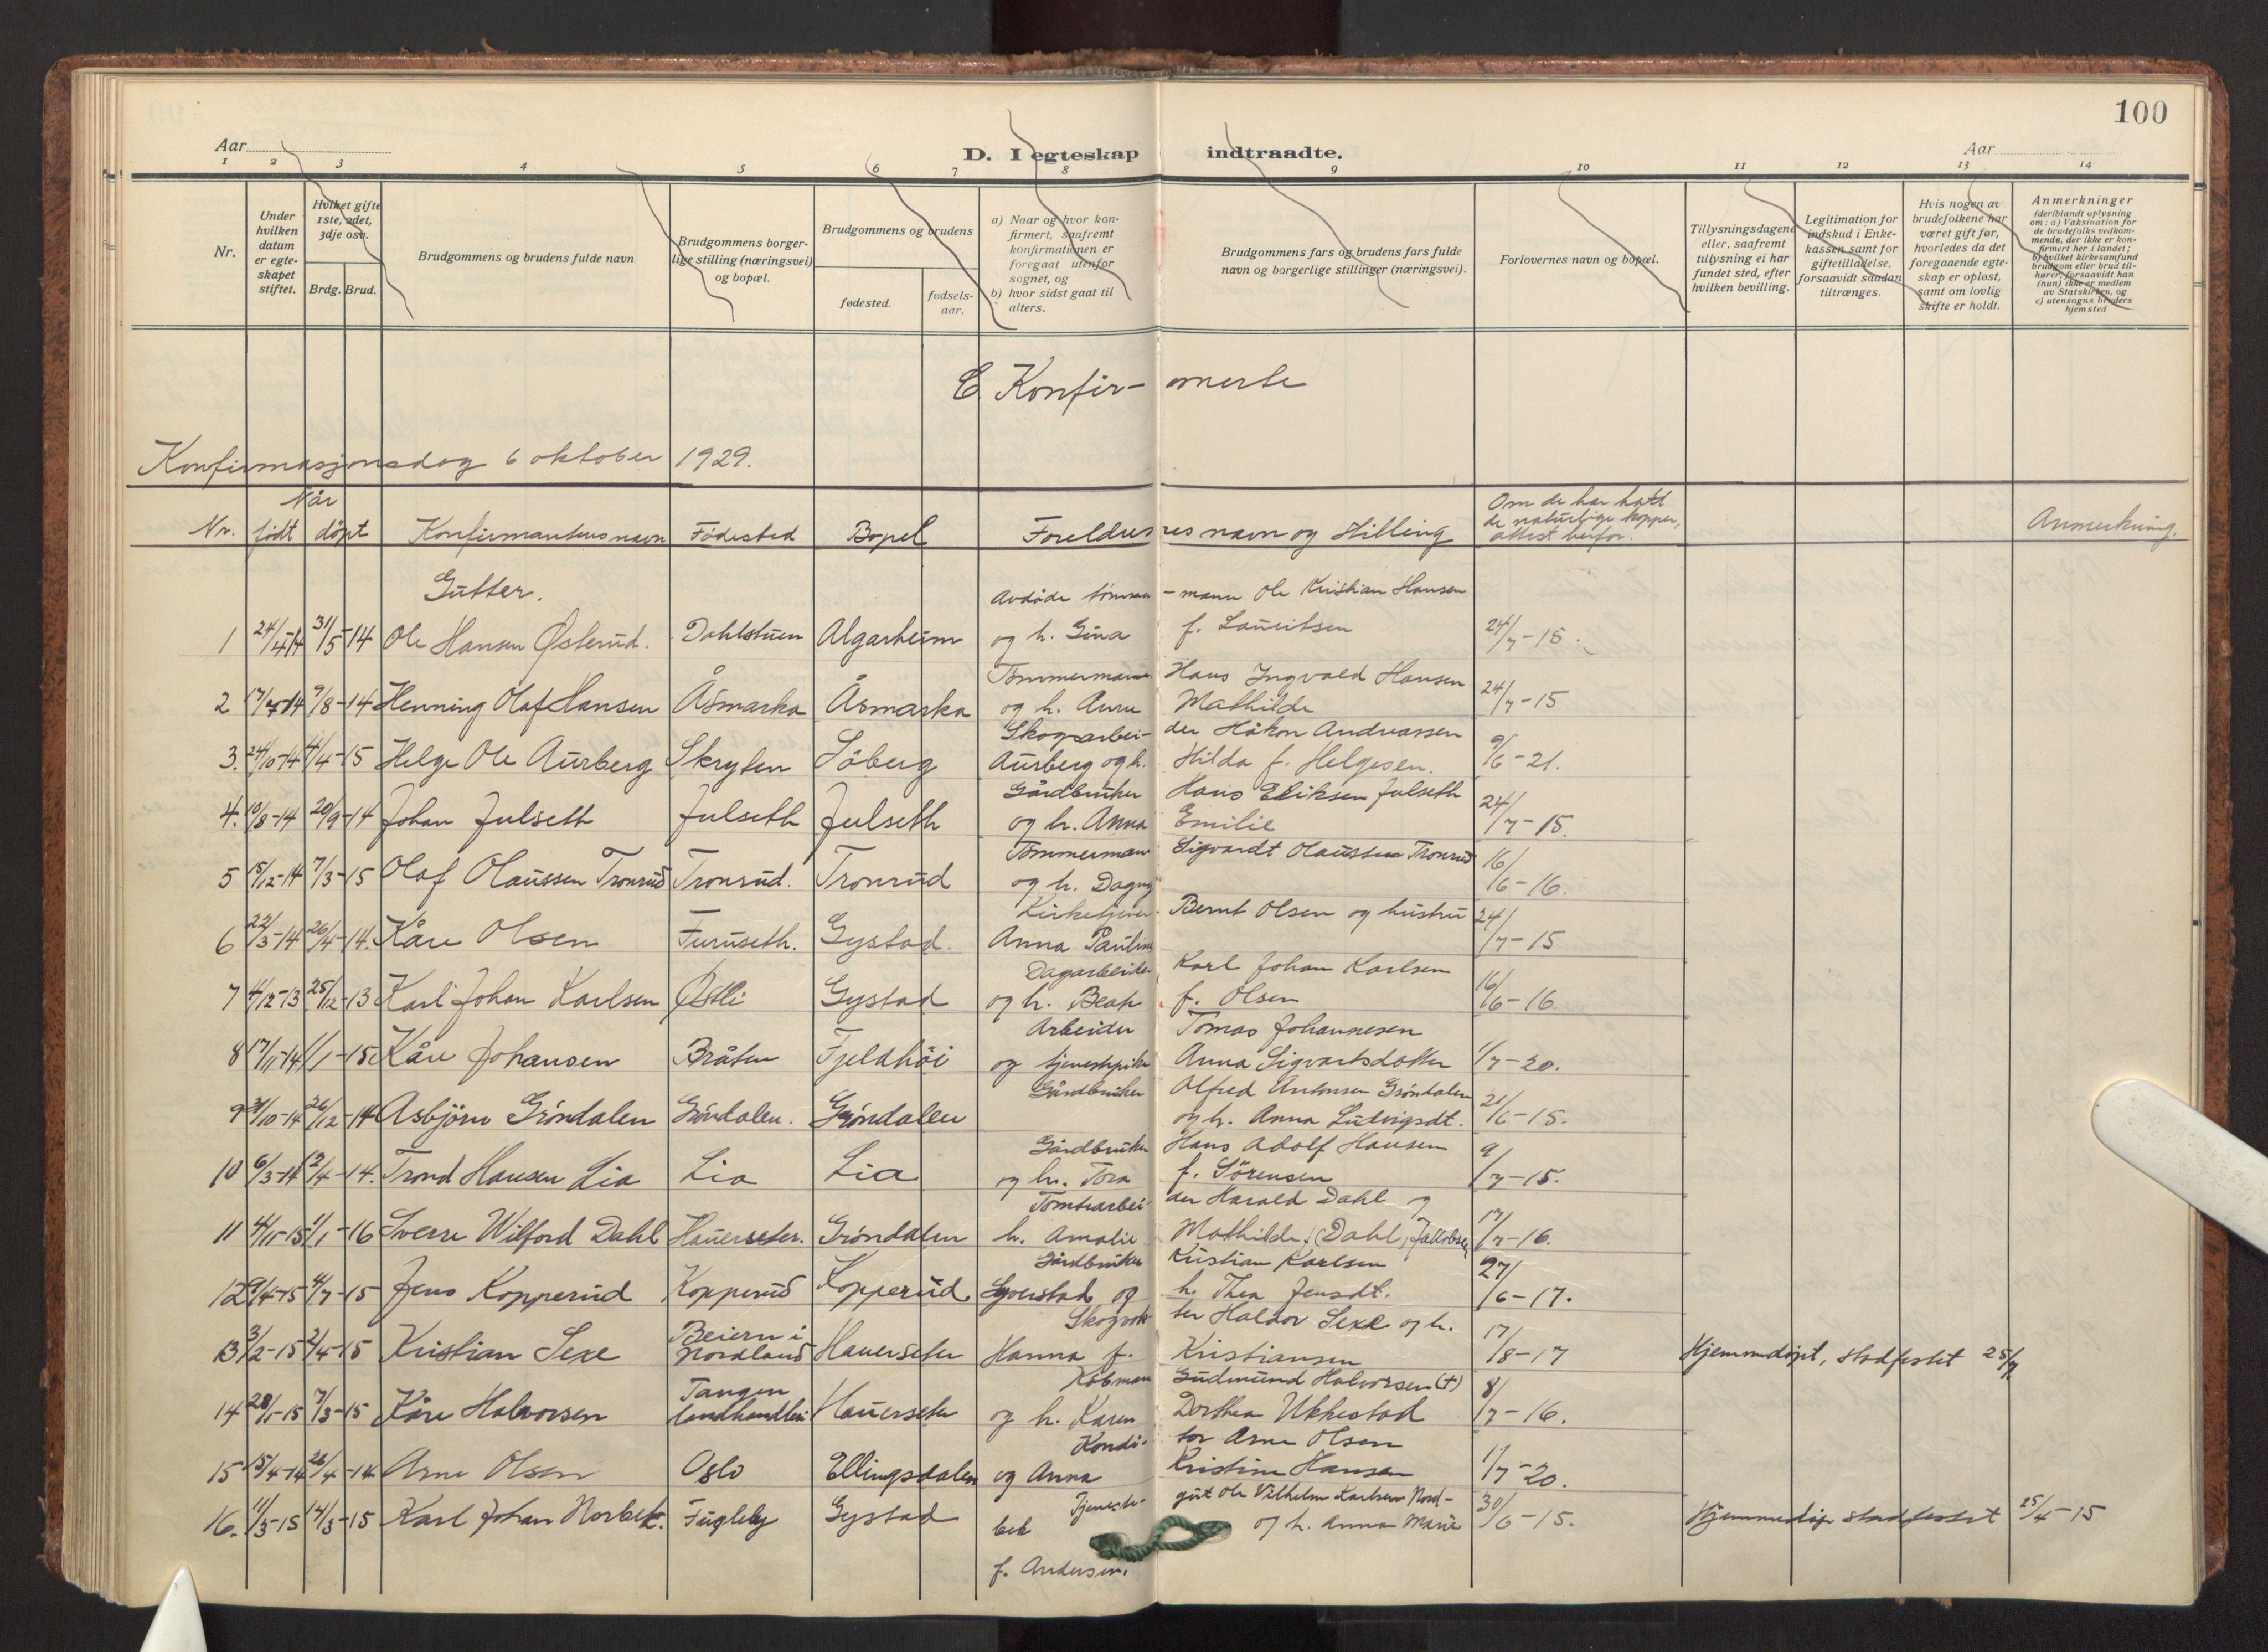 100
Aar
D. I egteskap indtraadte.
Aar
1 2 3 4 5 6 7 8 9 10 11 12 13 14
Nr.
Under hvilken datum er egteskapet stiftet.
Hvilket gifte 1ste, 2det, 3dje osv.
Brdg. Brud.
Brudgommens og brudens fulde navn
Brudgommens borgerlige stilling (næringsvei) og bopæl.
Brudgommens og brudens
fødested.
fødselsaar.
a) Naar og hvor konfirmert, saafremt konfirmationen er foregaat utenfor sognet, og
b) hvor sidst gaat til alters.
Brudgommens fars og brudens fars fulde navn og borgerlige stillinger (næringsvei).
Forlovernes navn og bopæl.
Tillysningsdagene eller, saafremt tillysning ei har fundet sted, efter hvilken bevilling.
Legitimation for indskud i Enkekassen samt for giftetilladelse, forsaavidt saadan tiltrænges.
Hvis nogen av brudefolkene har været gift før, hvorledes da det foregaaende egteskap er opløst, samt om lovlig skifte er holdt.
Anmerkninger (deriblandt oplysning om: a) Vaksination for de brudefolks vedkommende, der ikke er konfirmert her i landet; b) hvilket kirkesamfund brudgom eller brud tilhører, forsaavidt han (hun) ikke er medlem av Statskirken, og c) utensogns bruders hjemsted
C. Konfir- merte
Konfirmasjonsdag 6 oktober 1929.
Nr. Når født døpt Konfirmantens navn Fødested Bopel Foreldrenes navn og stilling Om de har hatt de naturlige kopper, attest herfor. Anmerkning.
Gutter.
Avdøde tømmermann Ole Kristian Hansen
1 24/4-14 31/5-14 Ole Hansen Østerud. Dahlstuen Algarheim og h. Gina f. Lauritsen 24/7-15.
Tømmermann Hans Ingvald Hansen
2 17/7-14 9/8-14 Henning Olaf Hansen Åsmarka Åsmarka og h. Anna Mathilde 24/7-15
Skogarbeider Håkon Andreassen
3. 24/10-14 4/4-15 Helge Ole Aurberg Skryten Søberg Aurberg og h. Hilda f. Helgesen. 9/6-21.
Gårdbruker Hans Eriksen Julseth
4. 10/8-14 20/9-14 Johan Julseth Julseth Julseth og h. Anna Emilie 24/7-15.
Tømmermann Sigvardt Olaussen Tronrud
5 15/12-14 7/3-15 Olaf Olaussen Tronrud Tronrud. Tronrud og h. Dagny 16/6-16.
Kirketjener Bernt Olsen og hustru
6 22/3-14 26/4-14. Kåre Olsen Furuseth. Gystad. Anna Pauline 24/7-15
Dagarbeider Karl Johan Karlsen
7 4/12-13 25/12-13 Karl Johan Karlsen Østli Gystad og h. Beate f. Olsen 16/6-16.
Arbeider Tomas Johannesen
8 17/11-14 1/1-15 Kåre Johansen Bråten Fjeldhøi og tjenestepike Anna Sigvartsdatter 1/7-20.
Gårdbruker Alfred Antonsen Grøndalen
9 31/10-14 26/12-14 Asbjørn Grøndalen Grøndalen. Grøndalen og h. Anna Ludvigsdt. 21/6-15.
Gårdbruker Hans Adolf Hansen
10 6/3-14 12/4-14. Trond Hansen Lia Lia Lia og h. Tora f. Sørensen 9/7-15.
Tomtearbeider Harald Dahl og
11 4/11-15 1/1-16 Sverre Wilford Dahl Hauerseter. Grøndalen h. Amalie Mathilde (Dahl) Jakobsen 17/7-16.
Gårdbruker Kristian Karlsen
12 9/4-15 4/7-15 Jens Kopperud Kopperud Kopperud Syverstad og h. Thea Jensdt. 27/6-17.
Skogvokter Haldor Sexe og h.
13 3/2-15 2/4-15 Kristian Sexe Beiern i Nordland Hauerseter Hanna f. Kristiansen 17/8-17 Hjemmedøpt, stadfestet 25/7
Købmann Gudmund Halvorsen (+)
14 28/1-15 7/3-15 Kåre Halvorsen Tangen landhandleri Hauerseter og h. Karen Dorthea Ukkestad 8/7-16.
Konditor Arne Olsen
15 15/4-14 26/4-14 Arne Olsen Oslo Ellingsdalen og Anna Kristine Hansen 1/7-20.
Tjenestegut Ole Vilhelm Karlsen Nord-
16. 11/3-15 14/3-15 Karl Johan Norbek. Fugleby Gystad bek og h. Anna Marie 30/6-15. Hjemmedøpt stadfestet 25/4-15
f. Andersen.